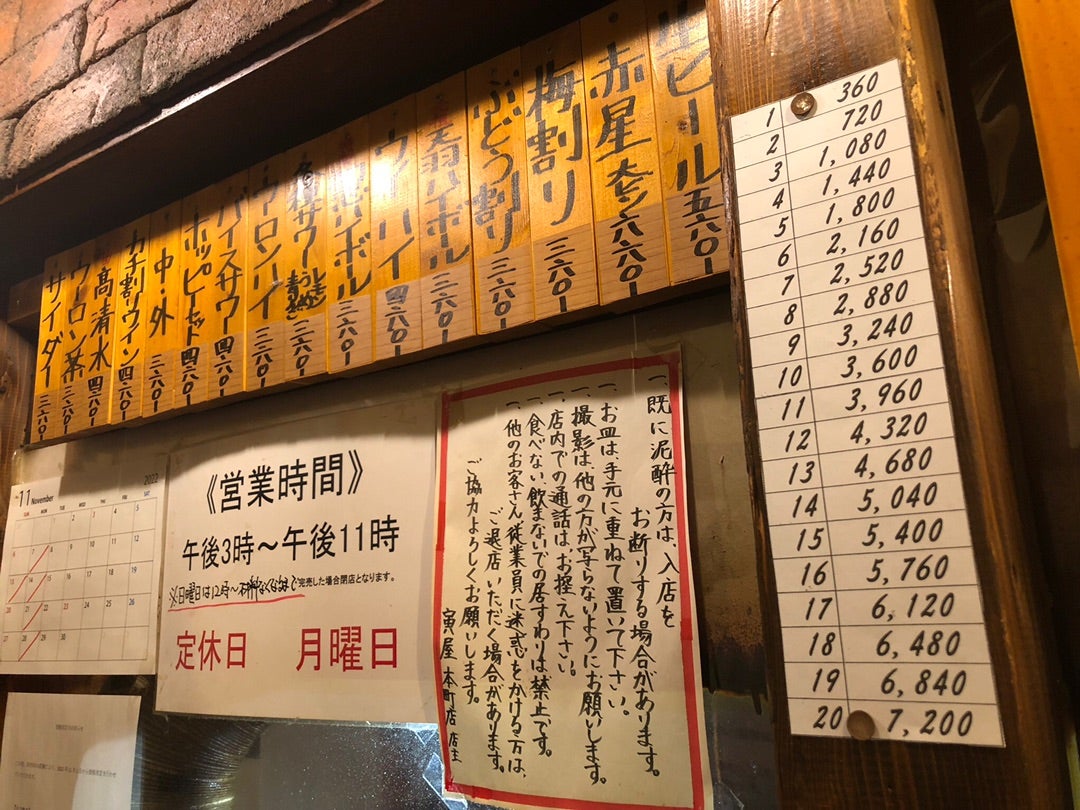 生ビール 五六〇-
赤星 大ビン 六八〇-
梅割り 三六〇-
ぶどう割り 三六〇-
天羽ハイボール 三六〇-
四六〇-
ハイボール 三六〇-
各種サワー 三六〇-
三六〇-
バイスサワー 四六〇-
ホッピーセット 四六〇-
中・外 三六〇-
カチ割ワイン 四六〇-
高清水 四六〇-
ウーロン茶 三六〇-
サイダー 三六〇-
1 360
2 720
3 1,080
4 1,440
5 1,800
6 2,160
7 2,520
8 2,880
9 3,240
10 3,600
11 3,960
12 4,320
13 4,680
14 5,040
15 5,400
16 5,760
17 6,120
18 6,480
19 6,840
20 7,200
一、既に泥酔の方は、入店を
お断りする場合があります。
一、お皿は、手元に重ねて置いて下さい。
一、撮影は、他の方が写らないようにお願いします。
一、店内での通話はお控え下さい。
一、食べない、飲まないでの居すわりは禁止です。
一、他のお客さん、従業員に迷惑をかける方は、
ご退店いただく場合があります。
ご協力よろしくお願いします。
寅屋 本町店 店主
《営業時間》
午後3時～午後11時
※日曜日は12時～
完売した場合閉店となります。
定休日 月曜日
11 November 2022
SUN MON TUE WED THU FRI SAT
1 2 3 4 5
6 7 8 9 10 11 12
13 14 15 16 17 18 19
20 21 22 23 24 25 26
27 28 29 30